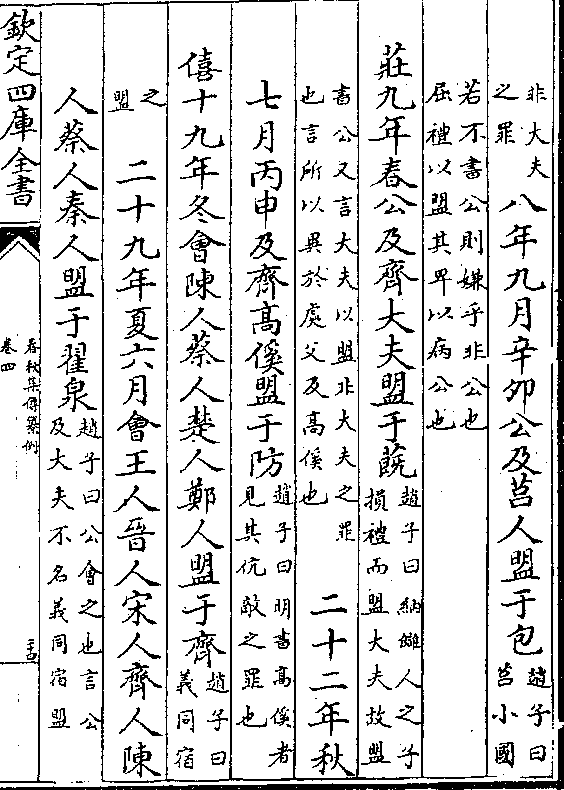 非大夫
之罪
八年九月辛卯公及莒人盟于包
趙子曰
莒小國
若不書公則嫌乎非公也
屈禮以盟其卑以病公也
莊九年春公及齊大夫盟于蔇
趙子曰納讎人之子
損禮而盟大夫故盟
書公又言大夫以盟非大夫之罪
也言所以異於處父及高傒也
二十二年秋
七月丙申及齊高傒盟于防
趙子曰明書高傒者
見其伉敵之罪也
僖十九年冬會陳人蔡人楚人鄭人盟于齊
趙子曰
義同宿
之
盟
二十九年夏六月會王人晉人宋人齊人陳
人蔡人秦人盟于翟泉
趙子曰公會之也言公
及大夫不名義同宿盟
欽定四庫全書
春秋集傳纂例
卷四